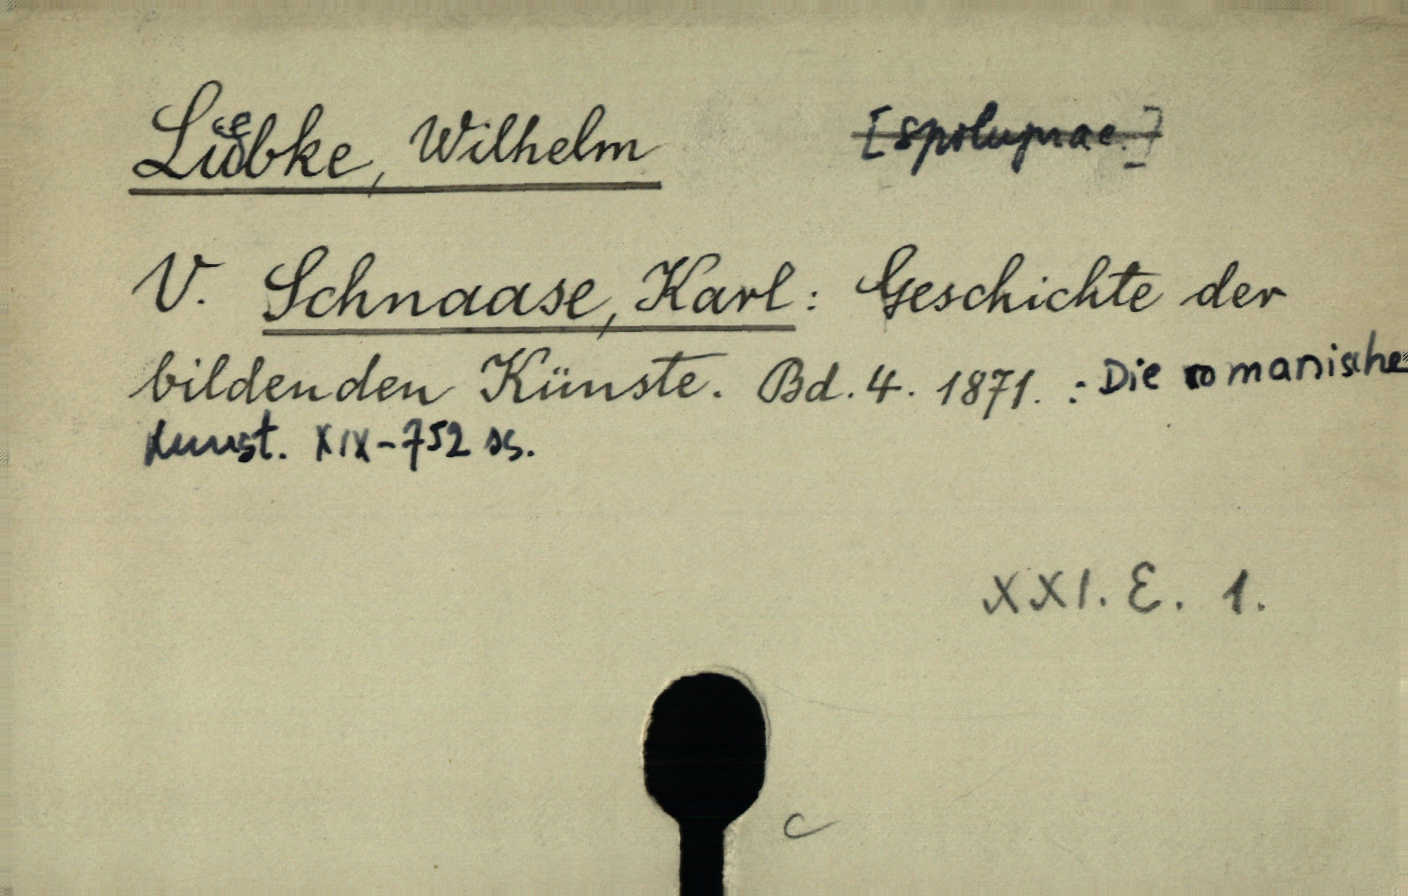 Lübke, Wilhelm [spoluprac.]
V. Schnaase, Karl: Geschichte der
bildenden Künste. Bd. 4. 1871. : Die romanische
Kunst. XIX-752 ss.
XXI. E. 1.
C